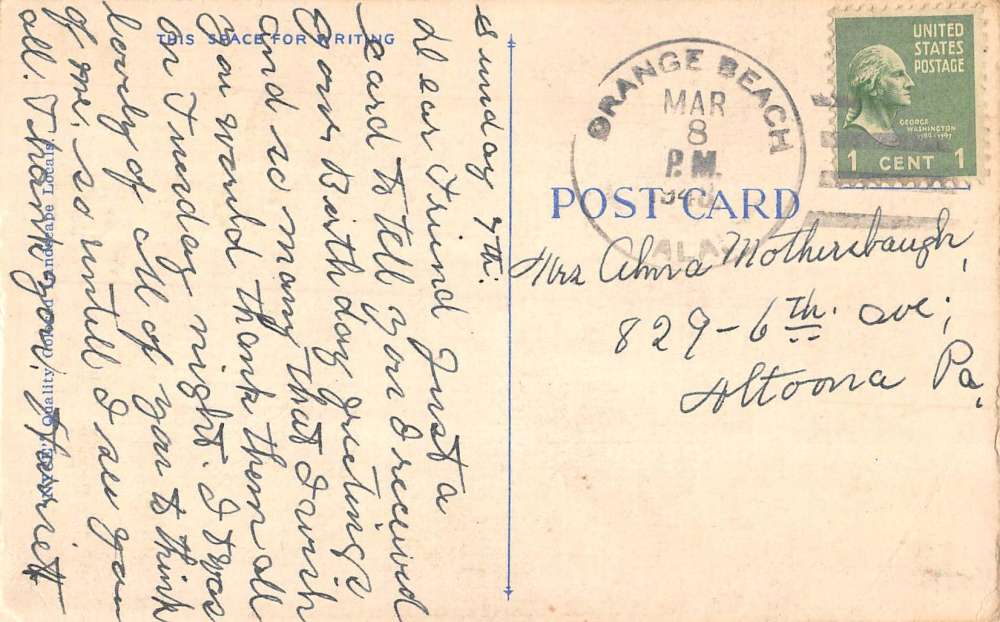 THIS SPACE FOR WRITING
Sunday 7th.
Dear Friend Just a
card to tell you I received
your Birthday greetings
and so many that I wish
you would thank them all
on Tuesday night. I was
lovely of all of you to think
of me, so untill I see you
all. Thank you.
Quality colored Landscape Locals.
ORANGE BEACH
MAR
8
P.M.
ALA.
UNITED
STATES
POSTAGE
GEORGE
WASHINGTON
1 CENT 1
POST CARD
Mrs Alma Mothersbaugh,
829-6th. ave;
Altoona Pa,